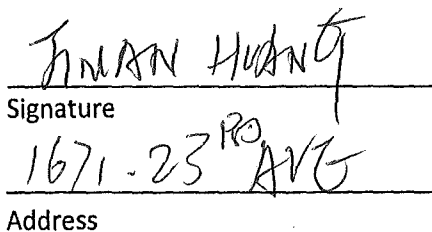 JIMAN HUANG
Signature
1671-23RD AVE
Address